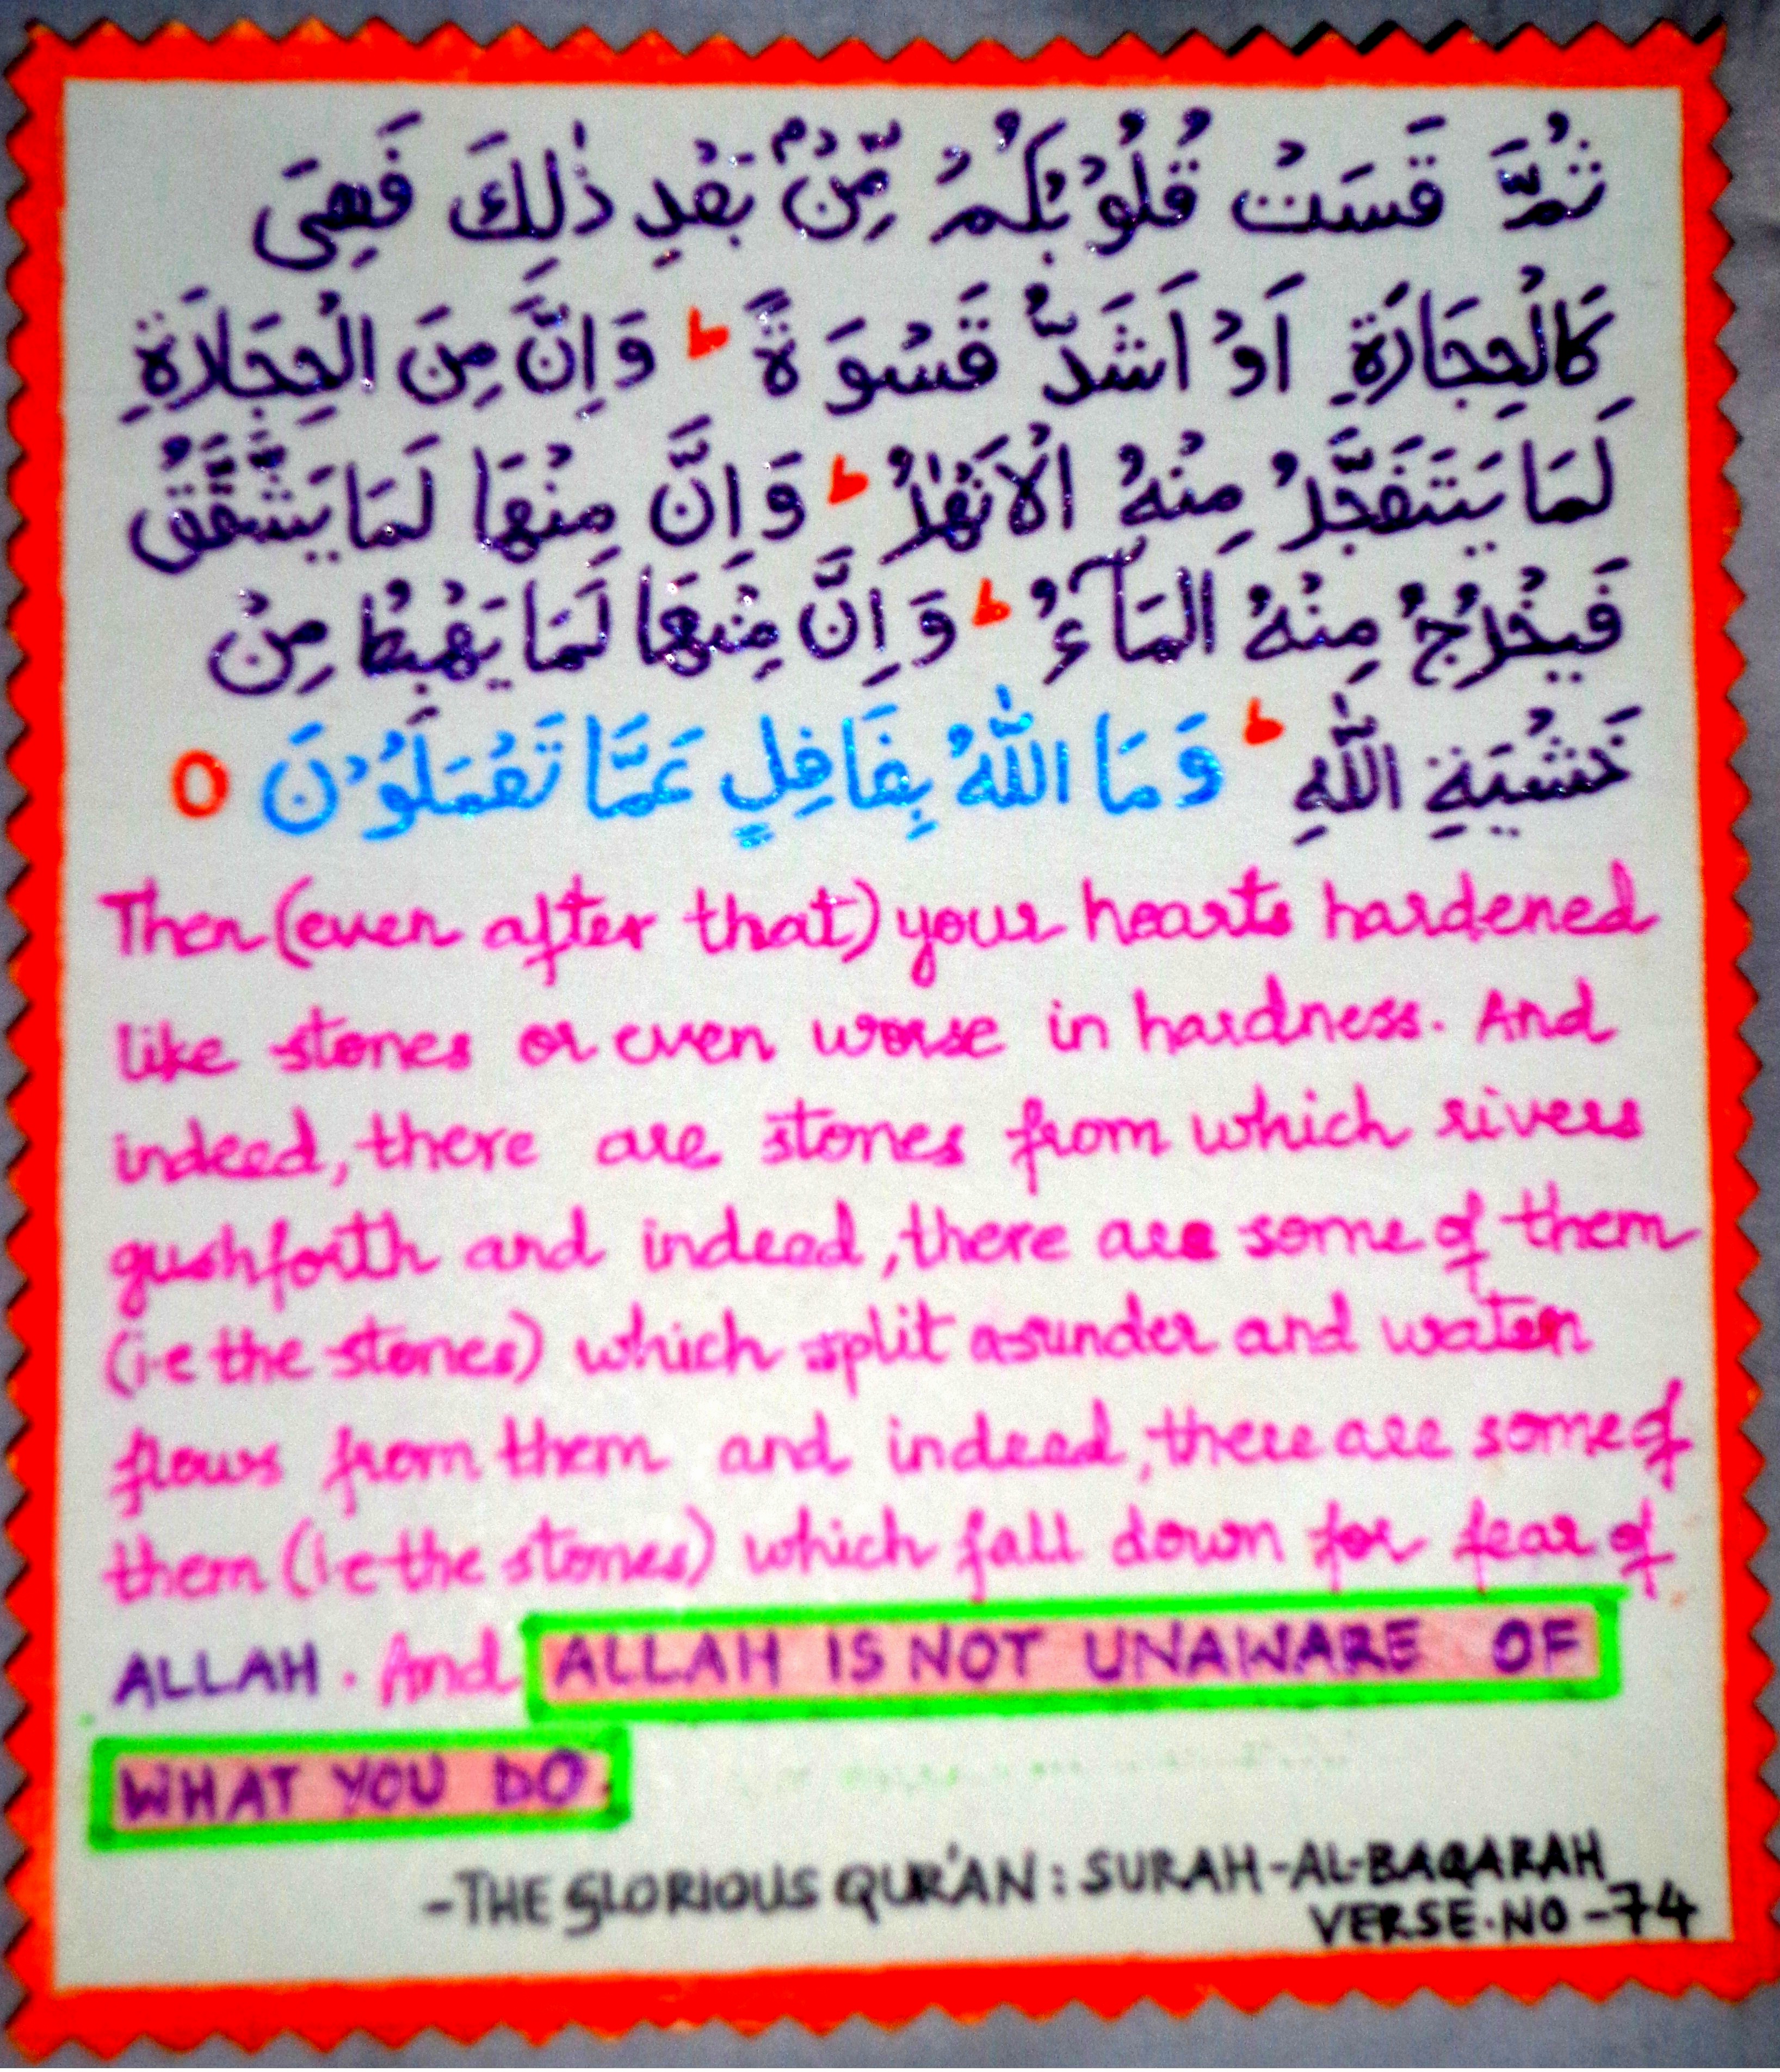 ثُمَّ قَسَتْ قُلُوْبُكُمْ مِّنْۢ بَعْدِ ذٰلِكَ فَهِىَ
كَالْحِجَارَةِ اَوْ اَشَدُّ قَسْوَةً ؕ وَاِنَّ مِنَ الْحِجَارَةِ
لَمَا يَتَفَجَّرُ مِنْهُ الْاَنْهٰرُ ؕ وَاِنَّ مِنْهَا لَمَا يَشَّقَّقُ
فَيَخْرُجُ مِنْهُ الْمَآءُ ؕ وَاِنَّ مِنْهَا لَمَا يَهْبِطُ مِنْ
خَشْيَةِ اللّٰهِ ؕ وَمَا اللّٰهُ بِغَافِلٍ عَمَّا تَعْمَلُوْنَ ○
Then (even after that) your hearts hardened
like stones or even worse in hardness. And
indeed, there are stones from which rivers
gushforth and indeed, there are some of them
(i.e the stones) which split asunder and water
flows from them and indeed, there are some of
them (i.e the stones) which fall down for fear of
ALLAH. And ALLAH IS NOT UNAWARE OF
WHAT YOU DO.
-THE GLORIOUS QUR'AN: SURAH-AL-BAQARAH
VERSE.NO-74